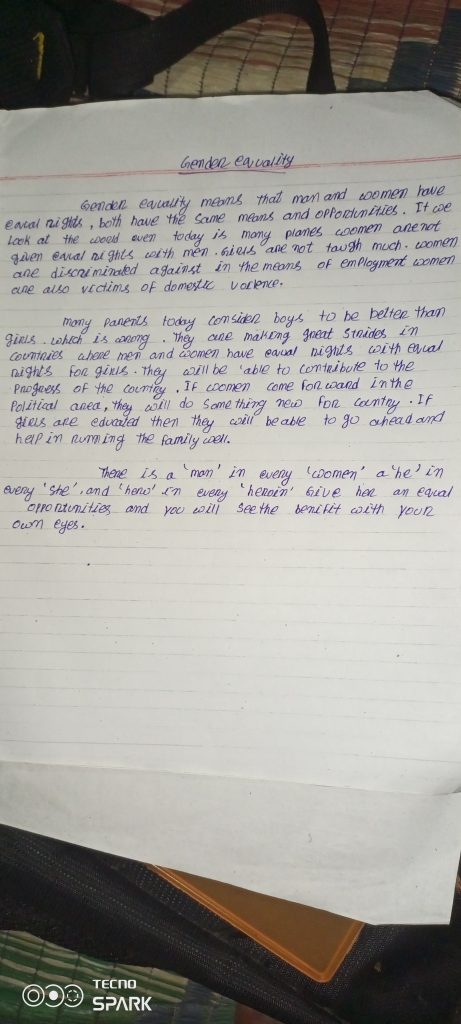 Gender equality
Gender equality means that man and women have
eaual rights, both have the same means and opportunities. If we
look at the woold even today is many planes women are not
given equal rights with men. Girls are not taugh much. women
are discriminated against in the means of employment women
are also victims of domestic voilence.
many parents today consider boys to be better than
girls. which is wrong. They are making great strides in
countries where men and women have equal rights with equal
rights for girls. They will be 'able to contribute to the
progress of the country. If women come forward in the
political area, they will do something new for country. If
girls are eduated then they will be able to go ahead and
help in running the family well.
There is a 'man' in every 'women' a 'he' in
every 'she'. and 'hero' in every 'heroin' Give her an equal
opportunities and you will see the benifit with your
own eyes.
TECNO
SPARK